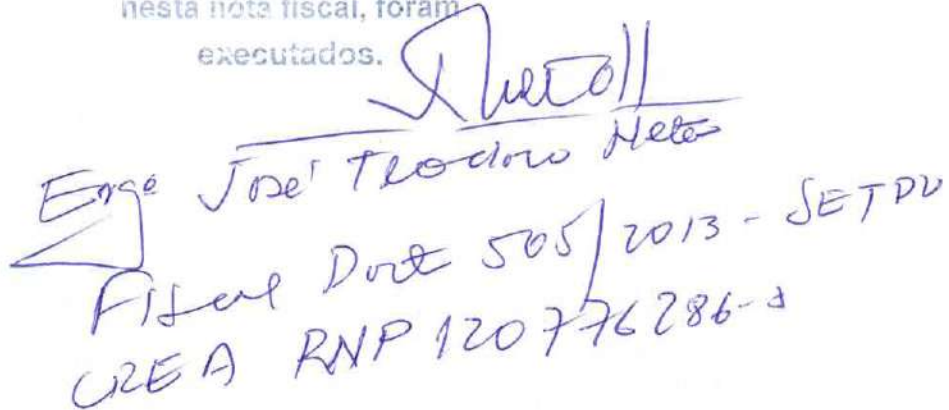 nesta nota fiscal, foram
executados.
Engº José Teodoro Neto
Fiscal Port 505/2013 - SETPU
CREA RNP 120776286-